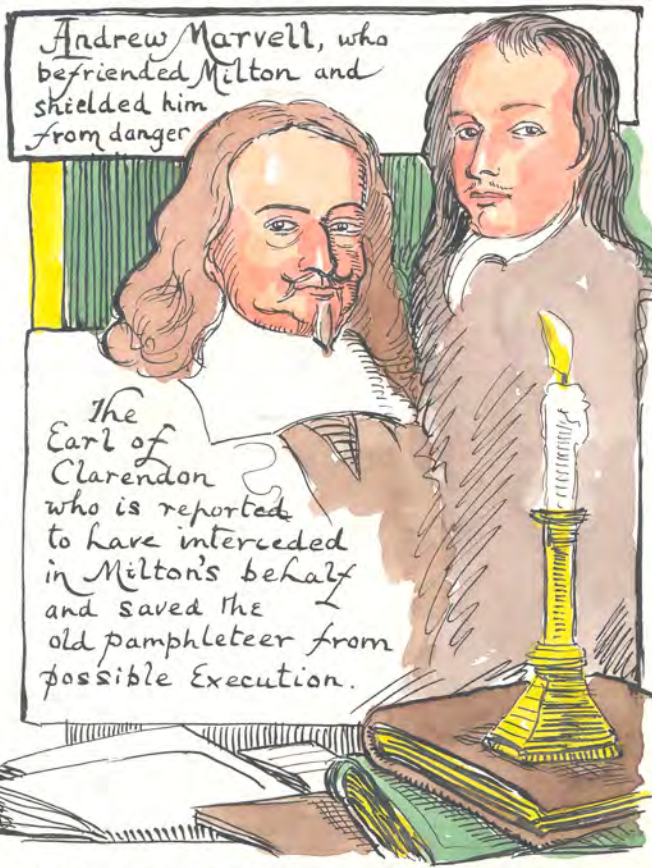 Andrew Marvell, who
befriended Milton and
shielded him
from danger
The
Earl of
Clarendon
who is reported
to have interceded
in Milton's behalf
and saved the
old pamphleteer from
possible Execution.